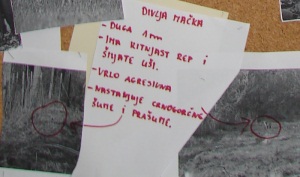 DIVLJA MAČKA
- DUGA 1m
- IMA KITNJAST REP I
ŠILJATE UŠI.
- VRLO AGRESIVNA
- NASTANJUJE CRNOGORIČNE
ŠUME I PRAŠUME.